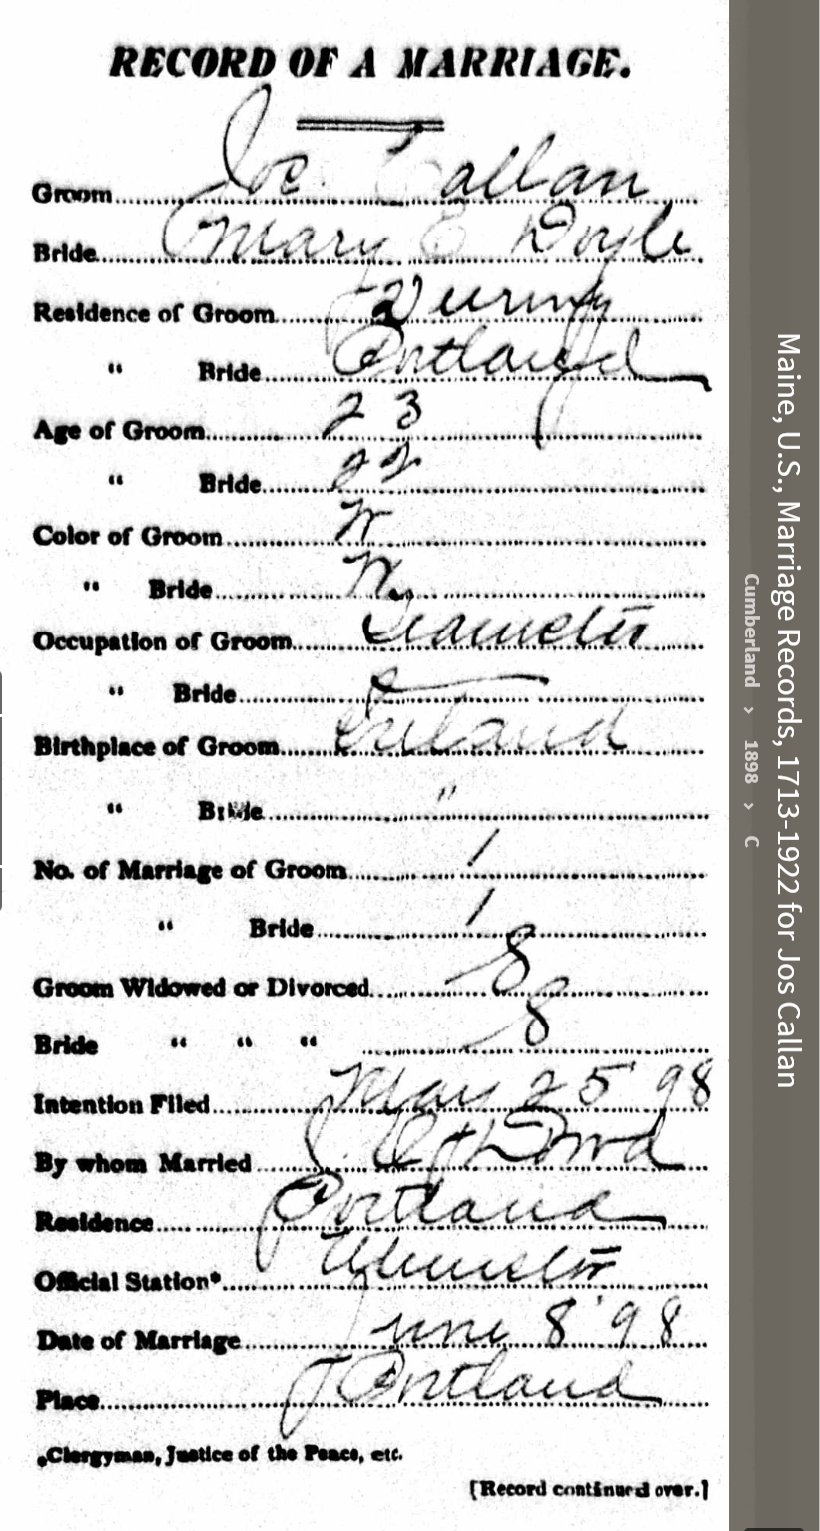 RECORD OF A MARRIAGE.
Groom Jos. Callan
Bride Mary E Doyle
Residence of Groom Deering
" Bride Portland
Age of Groom 23
" Bride 22
Color of Groom W
" Bride W
Occupation of Groom Teamster
" Bride
Birthplace of Groom Ireland
" Bride "
No. of Marriage of Groom 1
" Bride 1
Groom Widowed or Divorced S
Bride " " " S
Intention Filed May 25 '98
By whom Married
Residence Portland
Official Station* Minister
Date of Marriage June 8 '98
Place Portland
*Clergyman, Justice of the Peace, etc.
[Record continued over.]
Maine, U.S., Marriage Records, 1713-1922 for Jos Callan
Cumberland > 1898 > C